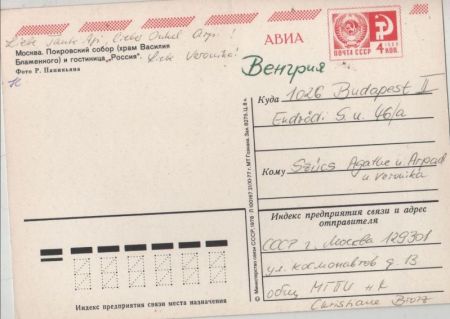 Liebe Tante Agi, Liebe Onkel Arpi!
Liebe Veronika!
Москва. Покровский собор (храм Василия
Блаженного) и гостиница „Россия".
Фото Р. Папикьяна
АВИА
ПОЧТА СССР 4 КОП
Венгрия
Куда 1026 Budapest II
Endrődi S. u. 46/a
Кому Szűcs Agathe u. Arpad
u Veronika
Индекс предприятия связи и адрес
отправителя
СССР г. Москва 129301
ул. космонавтов д. 13
общ МГПИ
Christiane
Индекс предприятия связи места назначения
© Министерство связи СССР, 1978